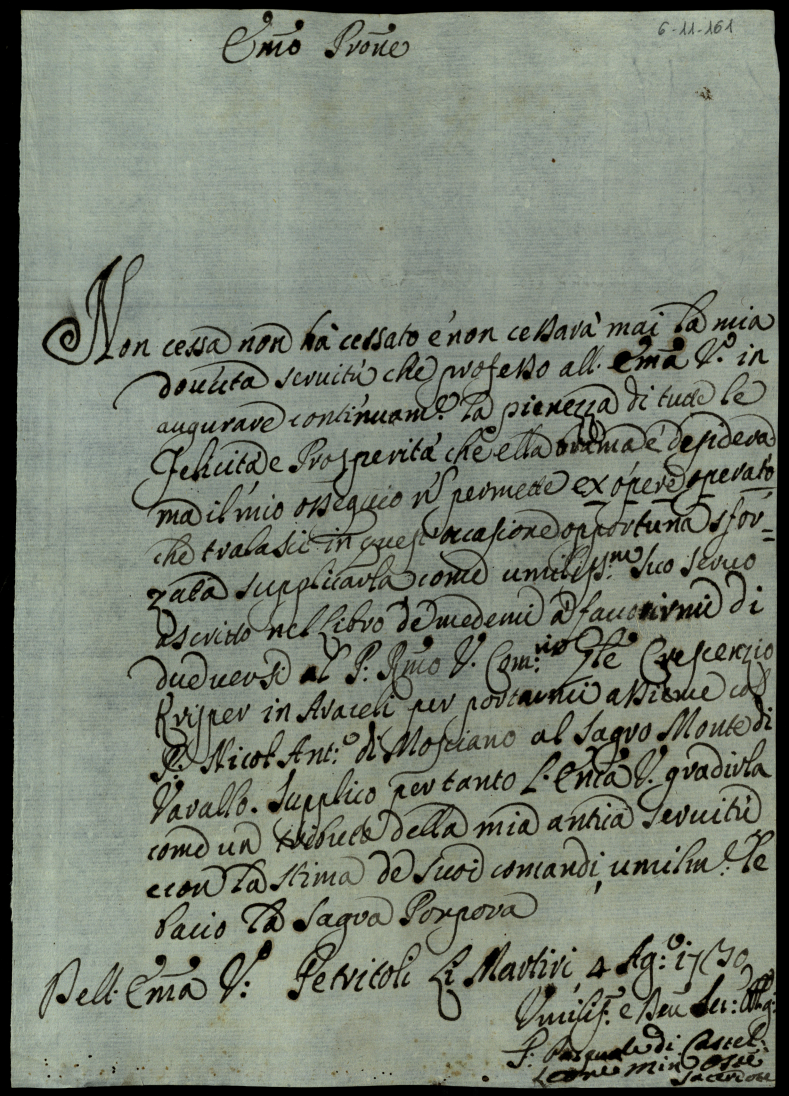 6-11-161
Emo Prone
Non cessa non hà cessato e non cessarà mai la mia
douuta seruitù che professo all. Ema V.a in
augurare continuam.e la pienezza di tutte le
Felicità e Prosperità che ella brama e desidera
ma il mio ossequio nō permette ex opere operato
che tralasci in quest'occasione opportuna sfor=
zata supplicarla come umiliss.mo suo seruo
ascritto nel Libro de medemi à fauorirmi di
due uersi al P: Rmo V. Com:rio Gle Crescenzio
Krisper in Araceli per portarmi assieme col
P: Nicol Ant:o di Mosciano al Sagro Monte di
Varallo. Supplico per tanto L'Ema V. gradirla
come un tributo della mia antica seruitù
e con la stima de suoi comandi, umilm:te le
bacio la Sagra Porpora
Dell: Ema V: Petritoli Li Martiri 4 Ag:o 1730
Vmilis: e Deu Ser: Obbg:
F: Pasquale di Castel:
Leone Min Osse
Sacerdote